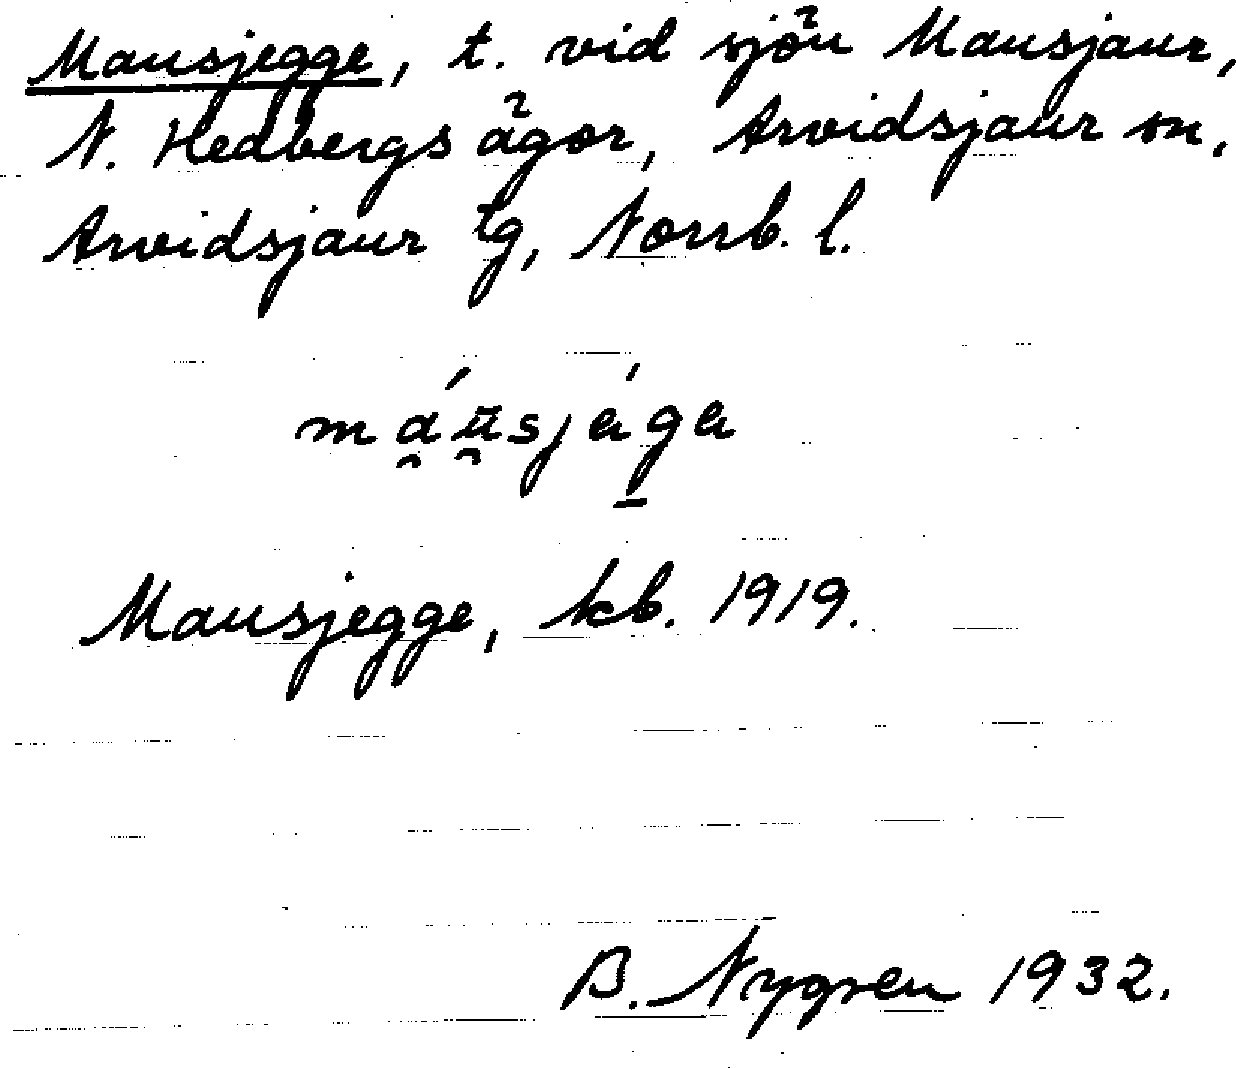 Mausjegge, t. vid sjön Mausjaur,
N. Hedbergs ägor, Arvidsjaur sn,
Arvidsjaur tg, Norrb. l.
Mausjegge, kb. 1919.
B. Nygren 1932.